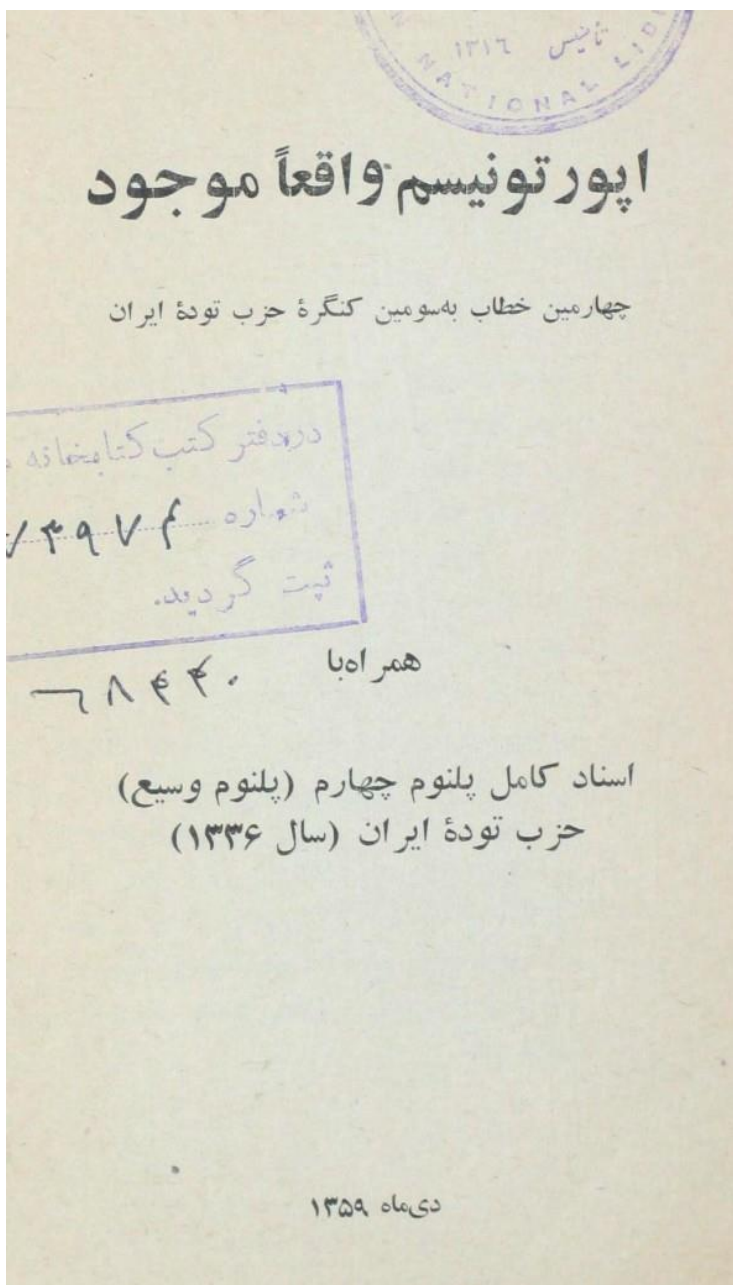 تأسیس
۱۳۱۶
NATIONAL
اپورتونیسم واقعاً موجود
چهارمین خطاب به‌سومین کنگرهٔ حزب تودهٔ ایران
در دفتر کتب کتابخانه
شماره م ۷۳۹۷
ثبت گردید.
۶۸۴۴۰
همراه‌با
اسناد کامل پلنوم چهارم (پلنوم وسیع)
حزب تودهٔ ایران (سال ۱۳۳۶)
دی‌ماه ۱۳۵۹